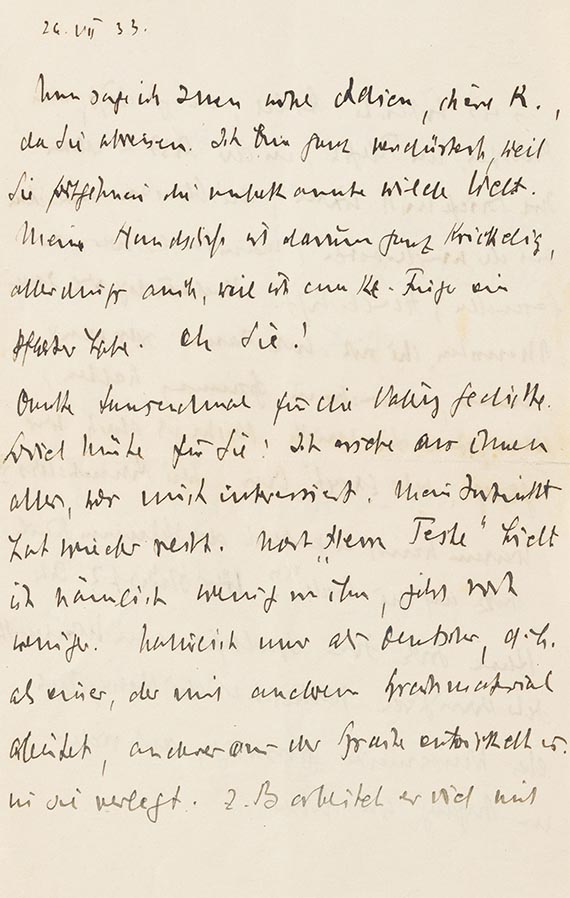 26. VII 33.
Nun sage ich Ihnen wohl Adieu, chère K.,
da Sie abreisen. Ich bin ganz verdüstert, weil
Sie in die unbekannte wilde Welt.
Meine Handschrift ist darum ganz krickelig,
allerdings auch, weil ich am kl. Finger ein
Pflaster habe. Oh Sie!
Danke tausendmal für die Valéry Gedichte.
Soviel Mühe für Sie! Ich ersehe aus ihnen
alles, was mich interessiert. Mein Instinkt
hat wieder recht. Nach „Herrn Teste" hielt
ich nämlich wenig von ihm, jetzt noch
weniger. Natürlich nur als Deutscher, d. h.
als einer, der mit anderem Sprachmaterial
arbeitet, anderes aus der Sprache entwickelt u.
in sie verlegt. Z. B arbeitet er viel mit